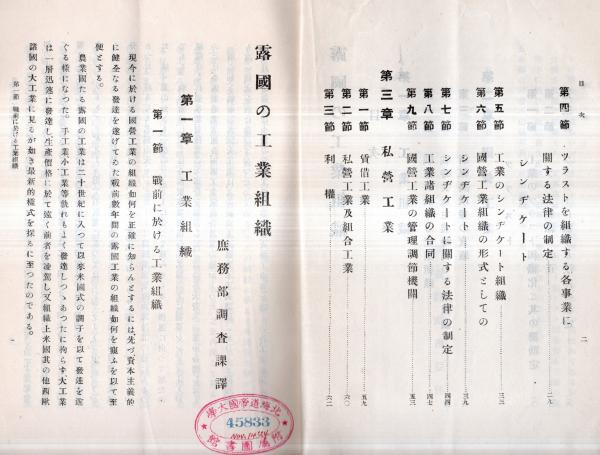 目次
二
第四節 ツラストを組織する各事業に
關する法律の制定……二九
シンヂケート
第五節 工業のシンヂケート組織……三三
第六節 國營工業組織の形式としての
シンヂケート……三九
第七節 シンヂケートに關する法律の制定……四四
第八節 工業諸組織の合同……四七
第九節 國營工業の管理調節機關……五三
第三章 私營工業
第一節 賃借工業……五九
第二節 私營工業及組合工業……六〇
第三節 利權……六二
露國の工業組織
庶務部調査課譯
第一章 工業組織
第一節 戰前に於ける工業組織
現今に於ける國營工業の組織如何を正確に知らんとするには、先づ資本主義的
に健全なる發達を遂げてゐた戰前數年間の露國工業の組織如何を窺ふを以て至
便とする。
農業國たる露國の工業は二十世紀に入つて以來米國式の調子を以て發達を遂
ぐる樣になつた。手工業小工業等孰れもよく發達しつゝあつたに拘らず大工業
は一層迅速に發達し生產價格に於て遠く前者を凌駕し又組織上米國其の他西歐
諸國の大工業に見るが如き最新的樣式を採るに至つたのである。
第一節 戰前に於ける工業組織
一
北海道帝國大學
45833
附屬圖書館